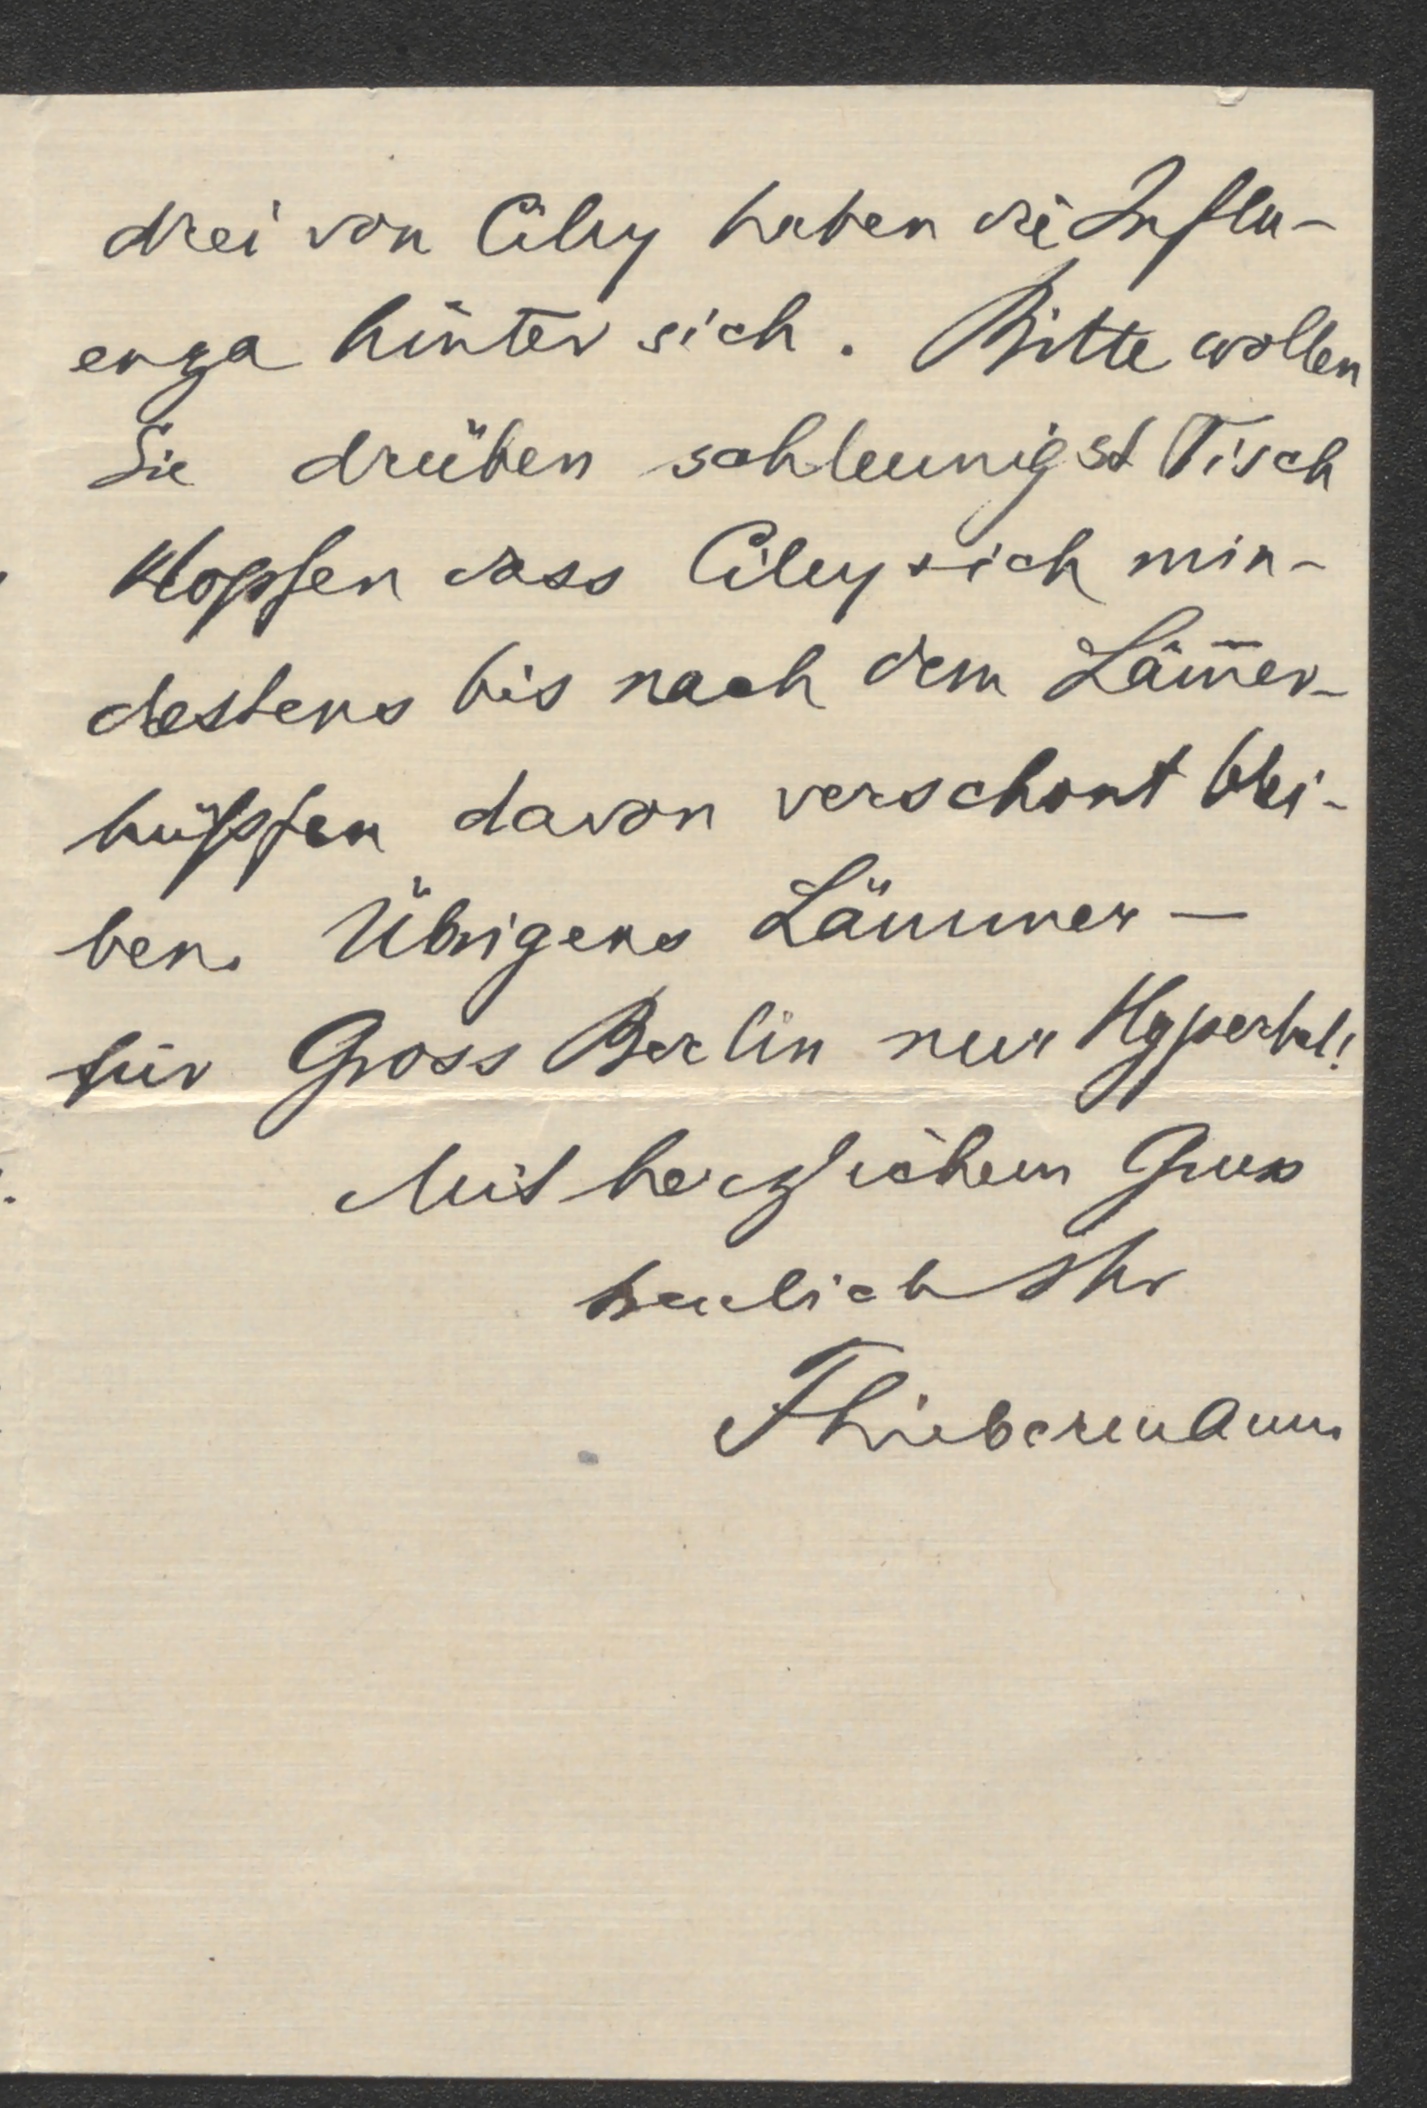 drei von Cilly haben die Influ-
enza hinter sich. Bitte wollen
Sie drüben schleunigst Tisch
klopfen dass Cilly + ich min-
destens bis nach dem Läm̅er-
hüpfen davon verschont blei-
ben. Übrigens Lämmer —
für Gross Berlin nur Hyperbel!
Mit herzlichem Gruss
treulich Ihr